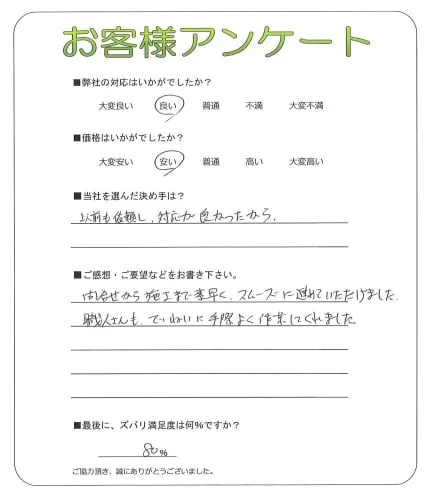 お客様アンケート
■弊社の対応はいかがでしたか?
大変良い 良い 普通 不満 大変不満
■価格はいかがでしたか?
大変安い 安い 普通 高い 大変高い
■当社を選んだ決め手は?
以前も依頼し、対応が良かったから。
■ご感想・ご要望などをお書き下さい。
問合せから施工まで素早く、スムーズに進めていただけました。
職人さんも、ていねいに手際よく作業してくれました
■最後に、ズバリ満足度は何%ですか?
80%
ご協力頂き、誠にありがとうございました。